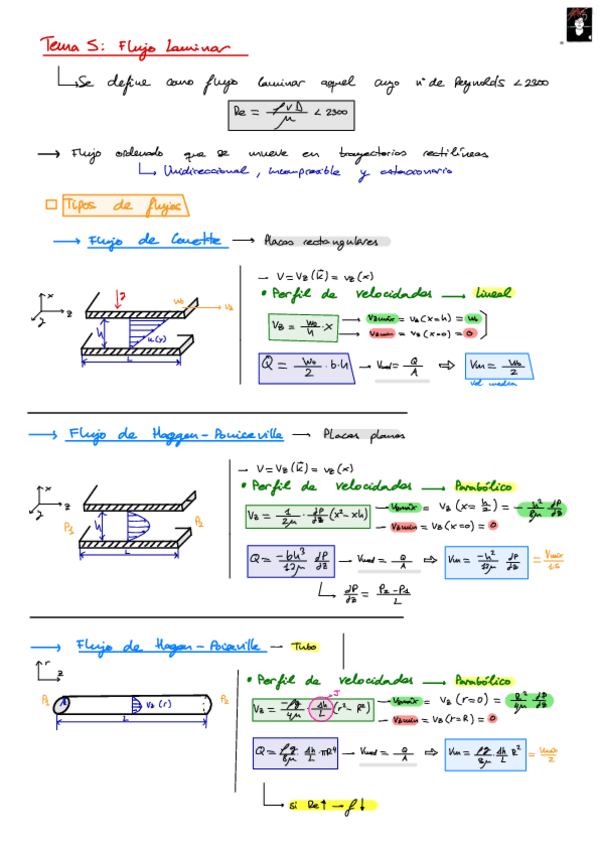 Tema 5: Flujo Laminar
Se define como flujo laminar aquel cuyo nº de Reynolds < 2300
Re = ρ v D / μ < 2300
→ Flujo ordenado que se mueve en trayectorias rectilíneas
Unidireccional, incompresible y estacionario
Tipos de flujos
→ Flujo de Couette → Placas rectangulares
x z y h L u(y) w₀ v₂
- V = Vz (k̂) = vz (x)
• Perfil de velocidades → Lineal
Vz = w₀/h · x → Vzmáx = vz (x=h) = w₀
→ Vzmín = vz (x=0) = 0
Q̇ = w₀/2 · b·h → Vmed = Q/A ⇒ Vm = w₀/2
vel media
→ Flujo de Haggen-Pouiceville → Placas planas
x z y P1 h L P2
- V = Vz (k̂) = vz (x)
• Perfil de velocidades → Parabólico
Vz = 1/2μ · dP/dz (x² - xh) → Vzmáx = Vz (x = h/2) = - h²/8μ dP/dz
→ Vzmín = Vz (x=0) = 0
Q = -bh³/12μ dP/dz → Vmed = Q/A ⇒ Vm = -h²/12μ dP/dz = Vmáx/1.5
dP/dz = P2 - P1 / L
→ Flujo de Hagen-Poiseville - Tubo
r z P1 Vz (r) L P2
• Perfil de velocidades → Parabólico
J
Vz = -ρg/4μ · Δh/L (r² - R²) → Vzmáx = Vz (r=0) = R²/4μ dP/dz
→ Vzmín = Vz (r=R) = 0
Q = ρg/8μ Δh/L πR⁴ → Vmed = Q/A ⇒ Vm = ρg/8μ · Δh/L R² = Vmáx/2
si Re↑ → f↓